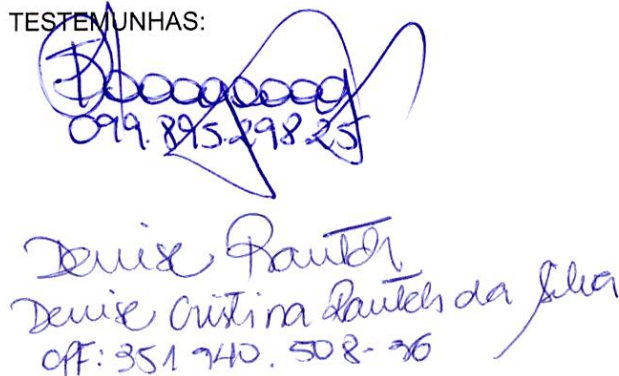 TESTEMUNHAS:
099.895.298.25
Denise Rautch
Denise Cristina Rautch da Silva
CPF: 351 940. 508-36